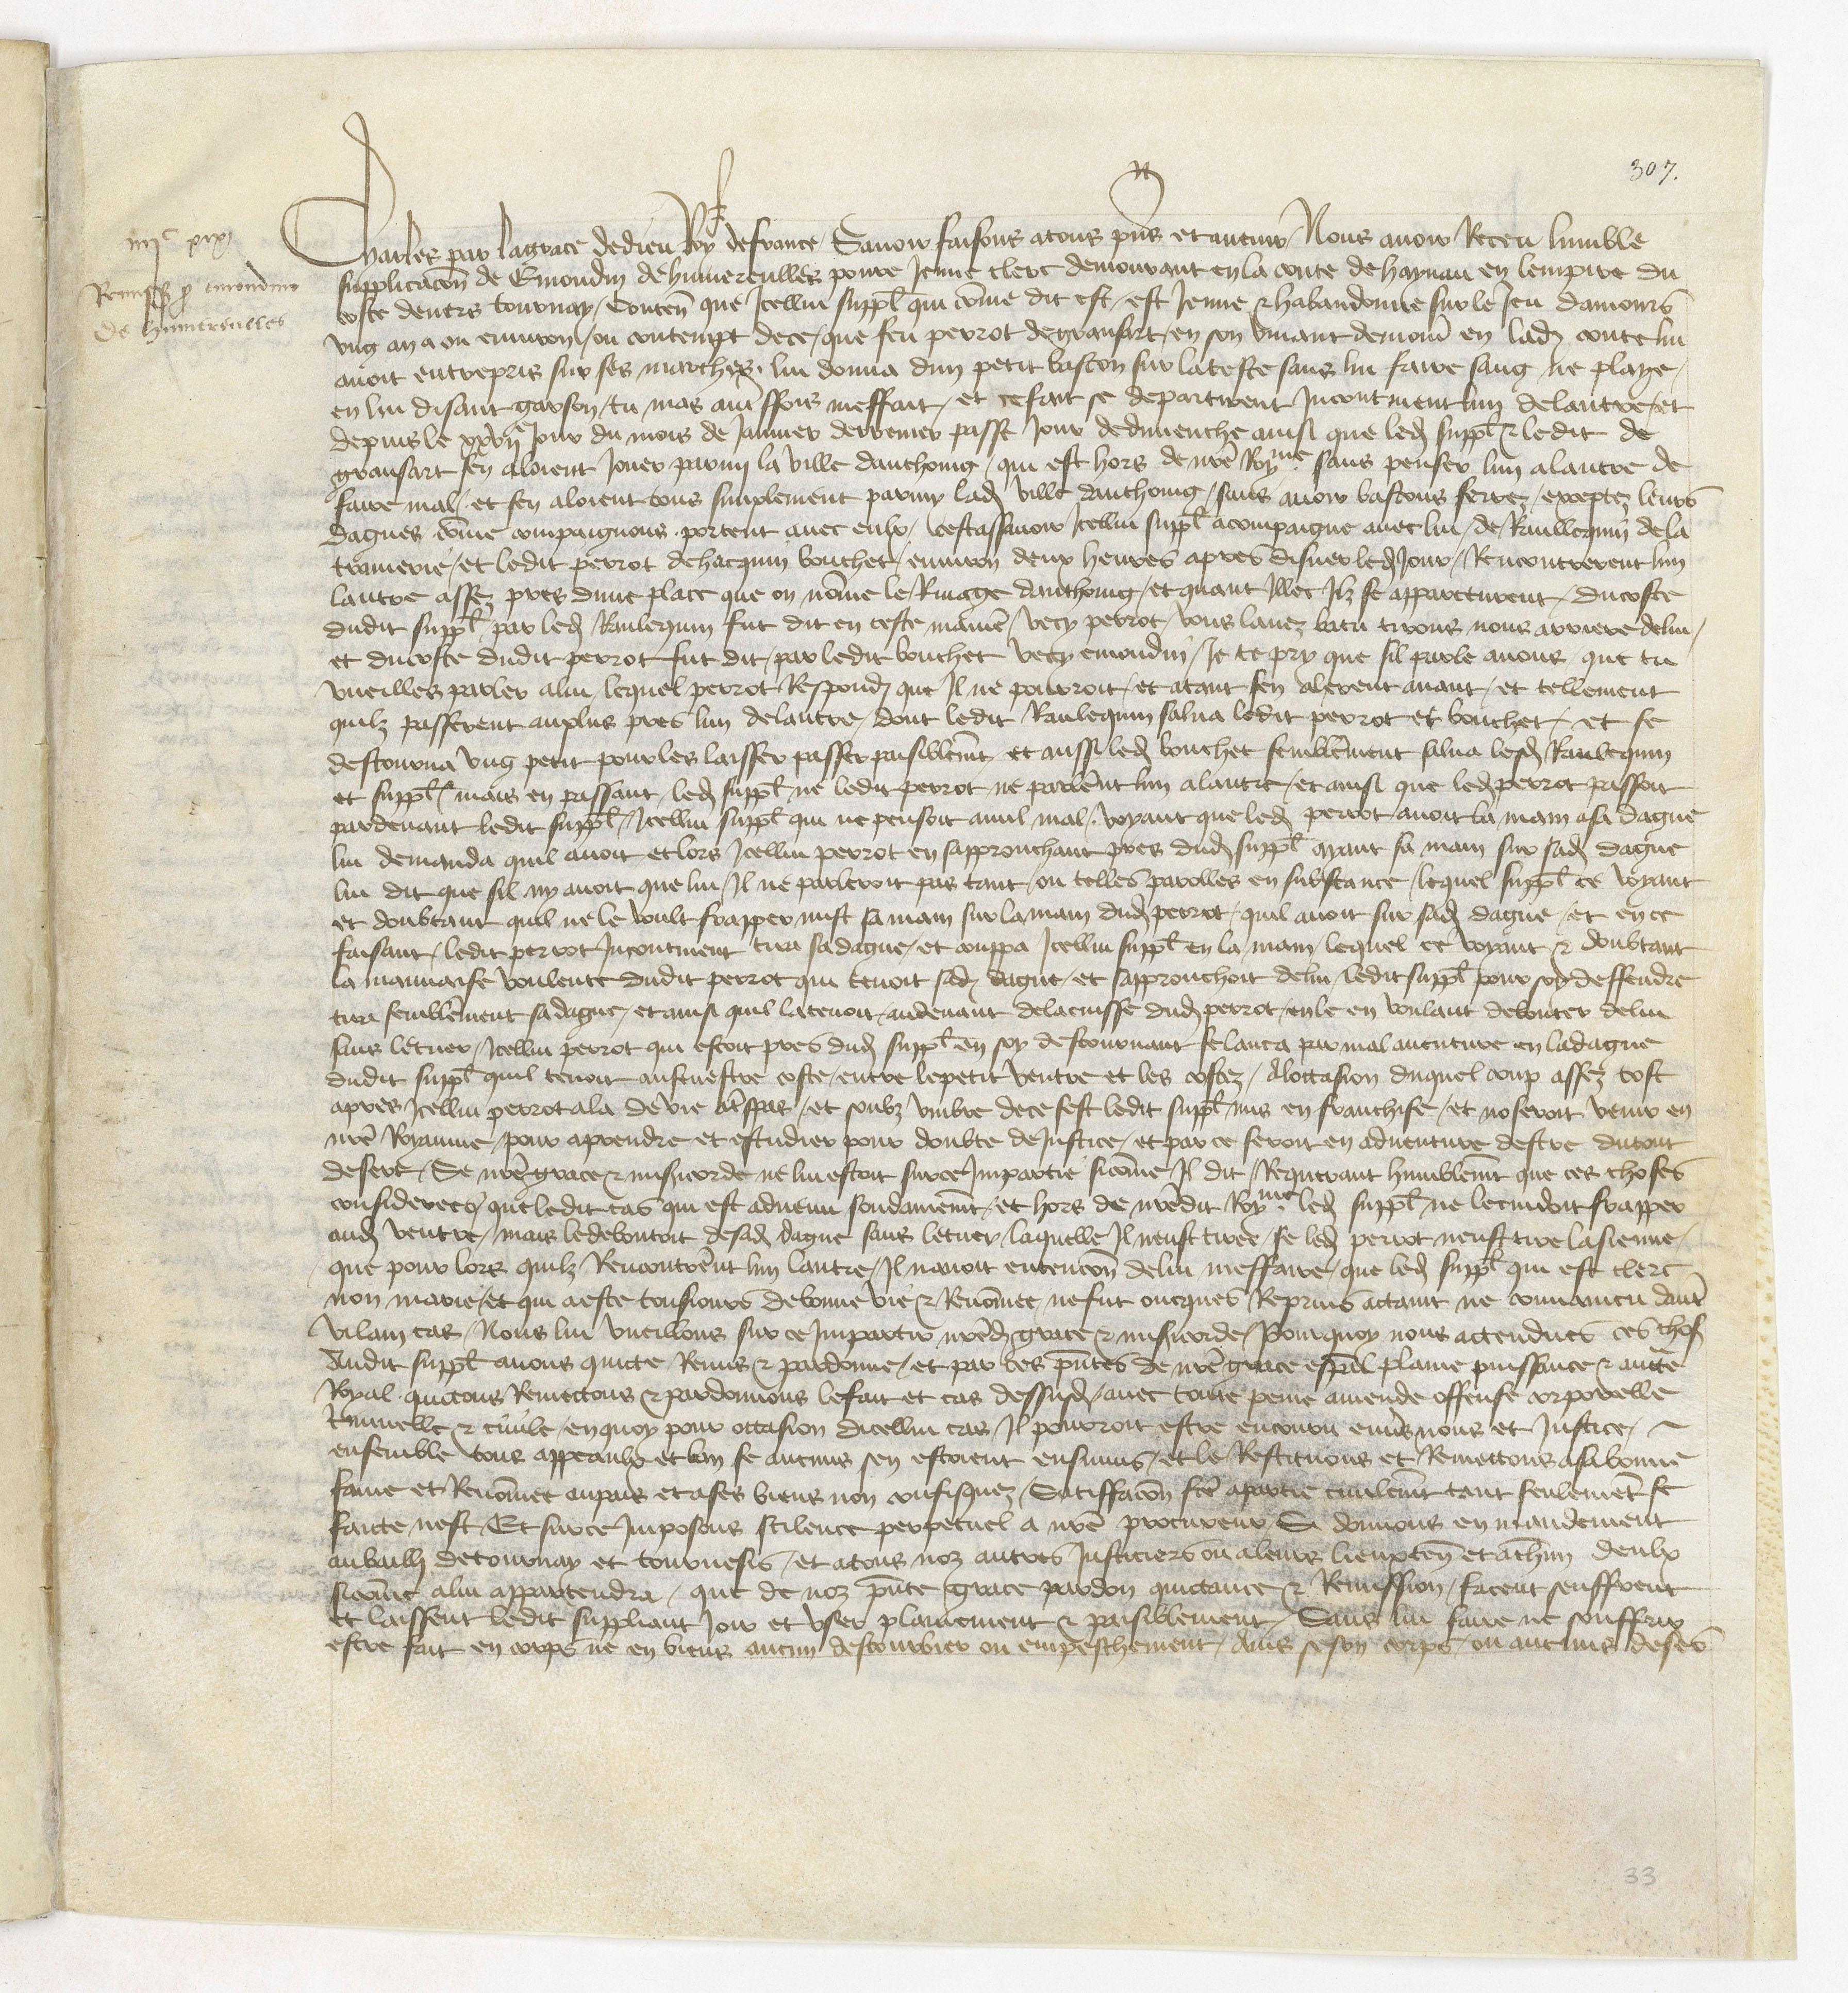 307.
Charles par la grace de dieu Roy de france Savoir faisons a tous pñs et avenir Nous avoir Receu humble
iiijc xix
Remissio p emondino
de humereulles
supplicacoñ de Emondin de humereulles povre jeune clerc demourant en la conte de haynau en lempire du
coste devers tournay Conteñ que Icellui suppl qui cõme dit est est jeune & habandonne sur le jeu damours
ung an a ou environ ou contempt de ce que feu perrot de gransart en son vivant demour en lad conte lui
avoit entrepris sur ses marches lui donna dun petit baston sur la teste sans lui faire sang ne playe
en lui disant garson tu mas autffois meffait et ce fait se departirent Incontinent lun de lautre et
depuis le xxviie jour du mois de Janvier derrenier passe jour de dimenche ainsi que led suppl & ledit de
gransart sen aloient jouer parmy la ville danthoing qui est hors de nrẽ Royme sans penser lun a lautre de
faire mal et sen aloient tous simplement parmy lad ville danthoing sans avoir bastons ferrez exceptez leurs
dagues cõme compaignons portent avec eulx Cestassavoir Icellui suppl acompaigne avec lui de Raulequin de la
tramerie et ledit perrot de hacquin bouchet environ deux heures apres disner led jour Rencontrerent lun
lautre assez pres dune place que on nõme le Rivage danthoing et quant illec Ilz se apparceurent Du coste
dudit suppl par led Raulequin fut dit en ceste manieˀ vecy perrot vous lavez batu tirons nous arriere de lui
et du coste dudit perrot fut dit par ledit bouchet vecy emondin Je te pry que sil parle a nous que tu
vueilles parler a lui lequel perrot Respond que Il ne pourroit et atant sen alerent avant et tellement
quilz passerent au plus pres lun de lautre dont ledit Raulequin salua ledit perrot et bouchet et se
destourna ung petit pour les laisser passer paisiblemt et aussi led bouchet semblement salua lesd Raulequin
et suppl mais en passant led suppl ne ledit perrot ne parlerent lun a lautre et ainsi que led perrot passoit
pardevant ledit suppl Icellui suppl qui ne pensoit a nul mal voyant que led perrot avoit la main a sa dague
lui demanda quil avoit et lors Icellui perrot en sapprouchant pres dud suppl ayant sa main sur sad dague
lui dit que sil ny avoit que lui Il ne parleroit pas tant ou telles parolles en substance lequel suppl ce voyant
et doubtant quil ne le voulst frapper mist sa main sur la main dud perrot quil avoit sur sad dague et en ce
faisant ledit perrot Incontinent tira sa dague et couppa Icellui suppl en la main lequel ce voyant & doubtant
la mauvaise voulente dudit perrot qui tenoit sad dague et sapprouchoit de lui ledit suppl pour soy deffendre
tira semblement sa dague et ainsi quil la tenoit au devant de la cuisse dud perrot en le en voulant debouter de lui
sans le tuer Icellui perrot qui estoit pres dud suppl en soy destournant se lanca par mal aventure en la dague
dudit suppl quil tenoit au senestre coste entre le petit ventre et les costez A loccasion duquel coup assez tost
apres Icellui perrot ala de vie a trespas et soubz umbre de ce sest ledit suppl mis en franchise et noseroit venir en
nrẽ Royaume pour aprendre et estudier pour doubte de Justice et par ce seroit en adventure destre du tout
desert Se nrẽ grace & misericorde ne lui estoit sur ce Impartie sicõme Il dit Requerant humblemt que ces choses
considerees que ledit cas qui est advenu soudainemt et hors de nrẽdit Royme led suppl ne le cuidoit frapper
oud ventre mais le deboutoit de sad dague sans le tuer laquelle Il neust tiree se led perrot neust tire la sienne
que pour lors quilz Rencontrent lun lautre Il navoit entencoñ de lui meffaire que led suppl qui est clerc
non marie et qui a este tousiours de bonne vie & Renõmee ne fut oncques Reprins attaint ne convaincu dautˀ
vilain cas Nous lui vueillons sur ce Impartir nrẽd grace & misericorde Pourquoy nous attendues ces chos
Audit suppl avons quicte Remis & pardonne et par ces pñtes de nrẽ grace espal plaine puissance & aucte
Royal quictons Remettons & pardonnons le fait et cas dessusd avec toute peine amende offense corporelle
Criminelle & civile en quoy pour occasion dicellui cas Il pourroit estre encouru envs nous et Justice
ensemble tous appeaulx et ban se aucuns sen estoient ensuiuis et le Restituons et Remettons a sa bonne
fame et Renõmee au pais et a ses biens non confisquez Satiffacoñ fcẽ a partie civilemt tant seulemet se
faicte nest Et sur ce Imposons scilence perpetuel a nrẽ procureur Si donnons en mandement
au bailli de tournay et tournesis et a tous noz autres Justiciers ou a leurs lieuxteñ et a chũn deulx
sicõme a lui appartendra que de noz pñte grace pardon quictance & Remission facent seuffrent
et laissent ledit suppliant joir et user plainement & paisiblement Sans lui faire ne souffrir
estre fait en corps ne en biens aucun destourbier ou empeschement Ains se son corps ou aucuns de ses
33